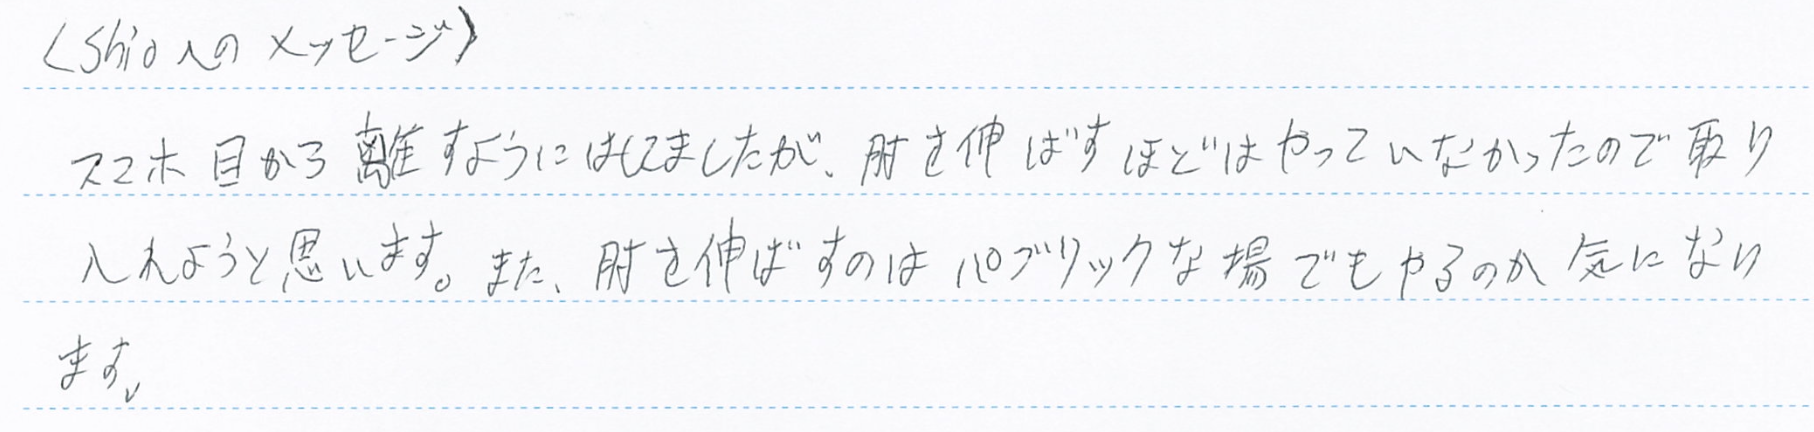 〈Shioへのメッセージ〉
スマホ目から離すようにはしてましたが、肘を伸ばすほどはやっていなかったので取り
入れようと思います。また、肘を伸ばすのはパブリックな場でもやるのか気になり
ます。